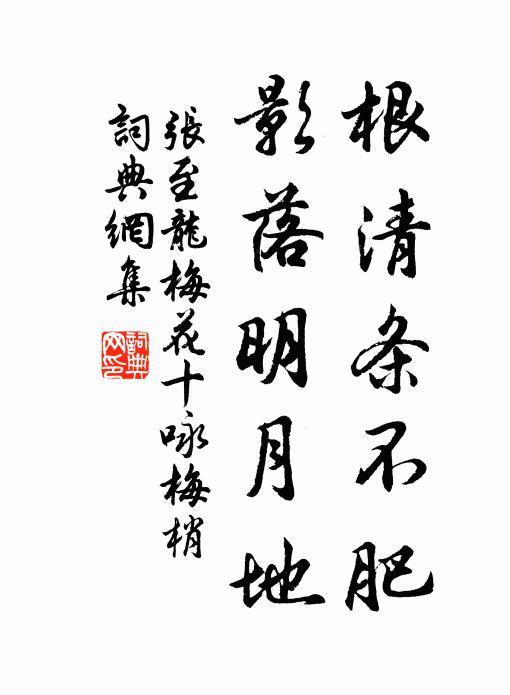 根清条不肥
影落明月地
張至龍梅花十咏梅梢
詞典網集
詞典
网印